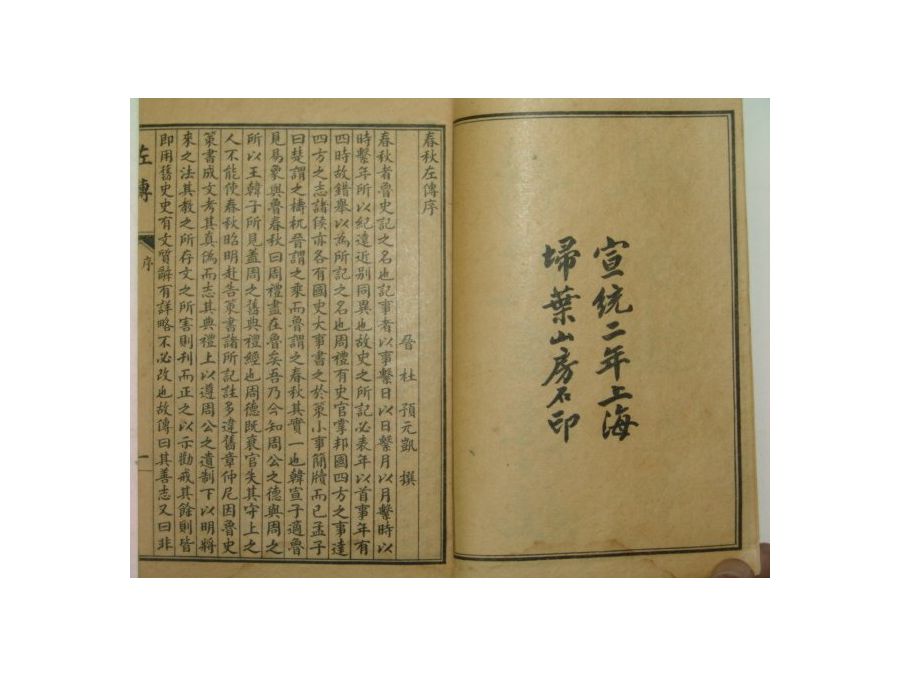 宣統二年上海
埽葉山房石印
春秋左傳序
晉杜預元凱撰
春秋者魯史記之名也記事者以事繫日以日繫月以月繫時以
時繫年所以紀遠近別同異也故史之所記必表年以首事年有
四時故錯舉以為所記之名也周禮有史官掌邦國四方之事達
四方之志諸侯亦各有國史大事書之於策小事簡牘而已孟子
曰楚謂之檮杌晉謂之乘而魯謂之春秋其實一也韓宣子適魯
見易象與魯春秋曰周禮盡在魯矣吾乃今知周公之德與周之
所以王韓子所見蓋周之舊典禮經也周德既衰官失其守上之
人不能使春秋昭明赴告策書諸所記註多違舊章仲尼因魯史
策書成文考其真偽而志其典禮上以遵周公之遺制下以明將
來之法其教之所存文之所害則刊而正之以示勸戒其餘則皆
即用舊史史有文質辭有詳略不必改也故傳曰其善志又曰非
左傳
序
一